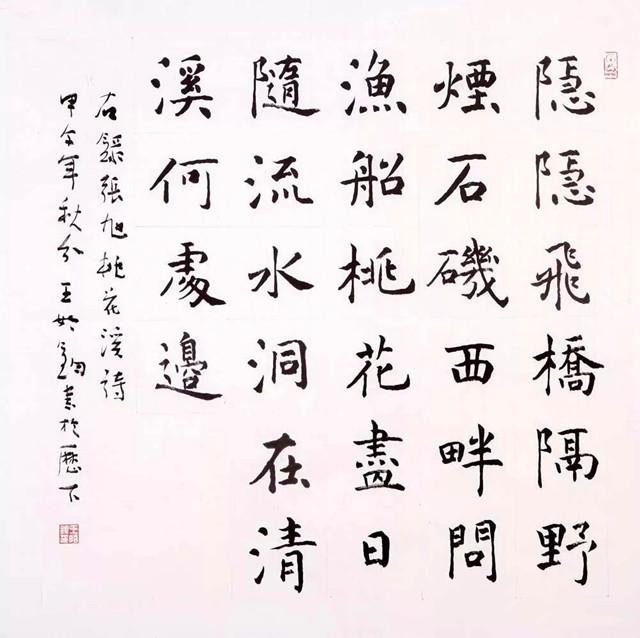 隱隱飛橋隔野
煙石磯西畔問
漁船桃花盡日
隨流水洞在清
溪何處邊
右錄張旭桃花溪詩
甲午年秋分王書於歷下